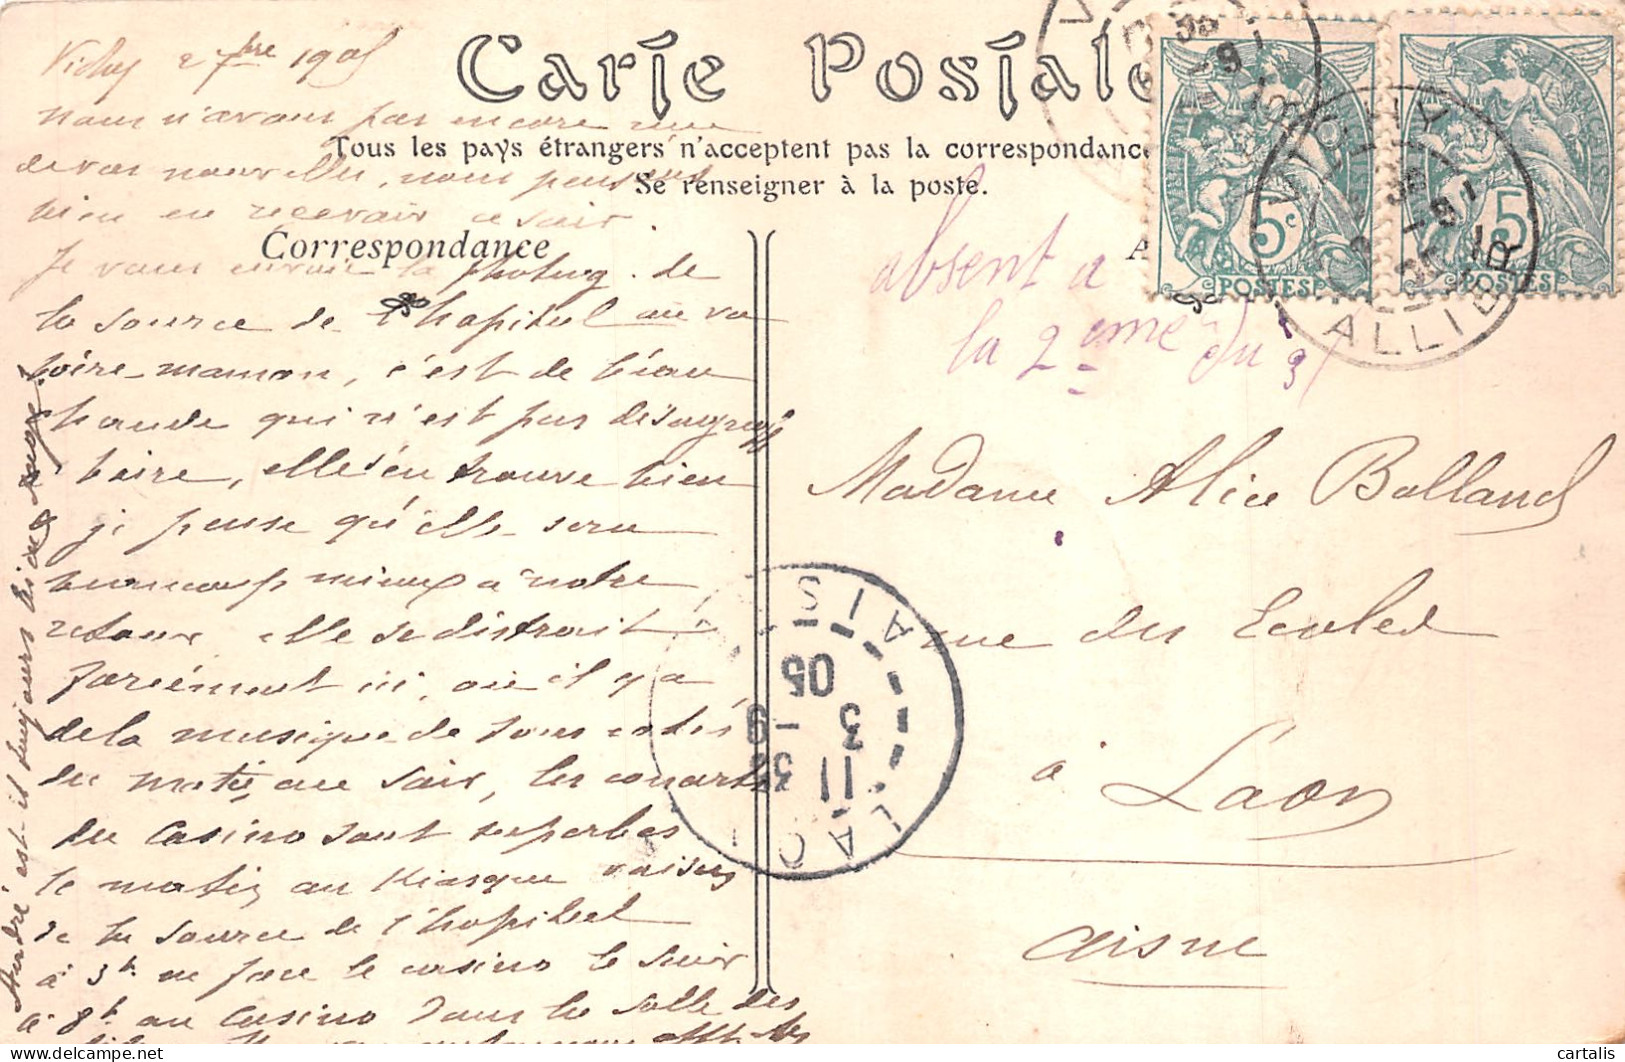 Carte Postale
Tous les pays étrangers n'acceptent pas la correspondance
Se renseigner à la poste.
Correspondance
A
Vichy 2 7bre 1905
nous n'avons pas encore
de vos nouvelles, nous pensons
bien en recevoir ce soir
Je vous envoie la photog. de
la source de l'hopital où va
boire maman, c'est de l'eau
chaude qui n'est pas désagré
boire, elle s'en trouve bien
je pense qu'elle sera
beaucoup mieux à notre
retour elle se distrait
forcément ici, où il y a
de la musique de tous cotés
du matin au soir, les concerts
du Casino sont superbes
le matin au Kiosque voisin
de la source de l'hopital
à 3h en face le casino le soir
à 8h au Casino dans la salle des
André est il toujours bien sage?
absent a
la 2eme du 3/
Madame Alice Bolland
rue des Ecoles
à Laon
Aisne
5c
POSTES
5
POSTES
VICHY
ALLIER
LAON
AISNE
11 35
3 -9
05
cartalis